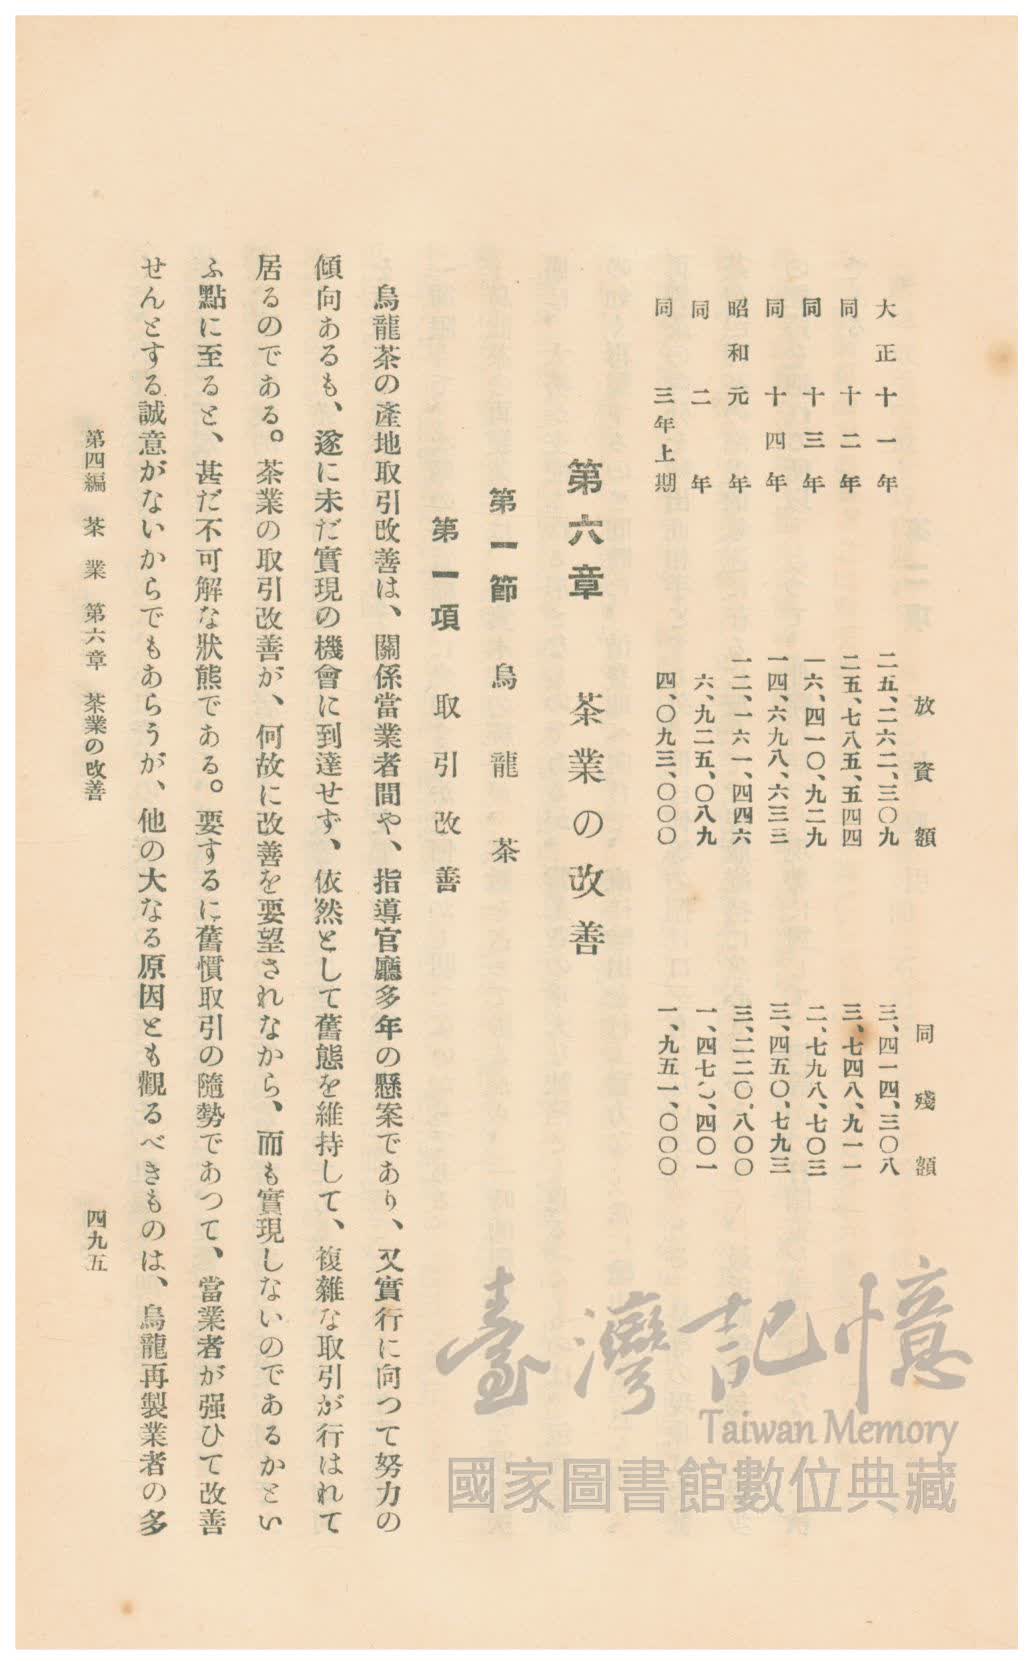 放資額 同殘額
大正十一年 二五、二六二、三〇九 三、四一四、三〇八
同十二年 二五、七八五、五四四 三、七四八、九一一
同十三年 一六、四一〇、九二九 二、七九八、七〇三
同十四年 一四、六九八、六三三 三、四五〇、七九三
昭和元年 一二、一六一、四四六 三、二二〇、八〇〇
同二年 六、九二五、〇八九 一、四七〇、四〇一
同三年上期 四、〇九三、〇〇〇 一、九五一、〇〇〇
第六章 茶業の改善
第一節 烏龍茶
第一項 取引改善
烏龍茶の產地取引改善は、關係當業者間や、指導官廳多年の懸案であり、又實行に向つて努力の
傾向あるも、遂に未だ實現の機會に到達せず、依然として舊態を維持して、複雜な取引が行はれて
居るのである。茶業の取引改善が、何故に改善を要望されなから、而も實現しないのであるかとい
ふ點に至ると、甚だ不可解な狀態である。要するに舊慣取引の隨勢であつて、當業者が强ひて改善
せんとする誠意がないからでもあらうが、他の大なる原因とも觀るべきものは、烏龍再製業者の多
第四編 茶業 第六章 茶業の改善
四九五
臺灣記憶
Taiwan Memory
國家圖書館數位典藏